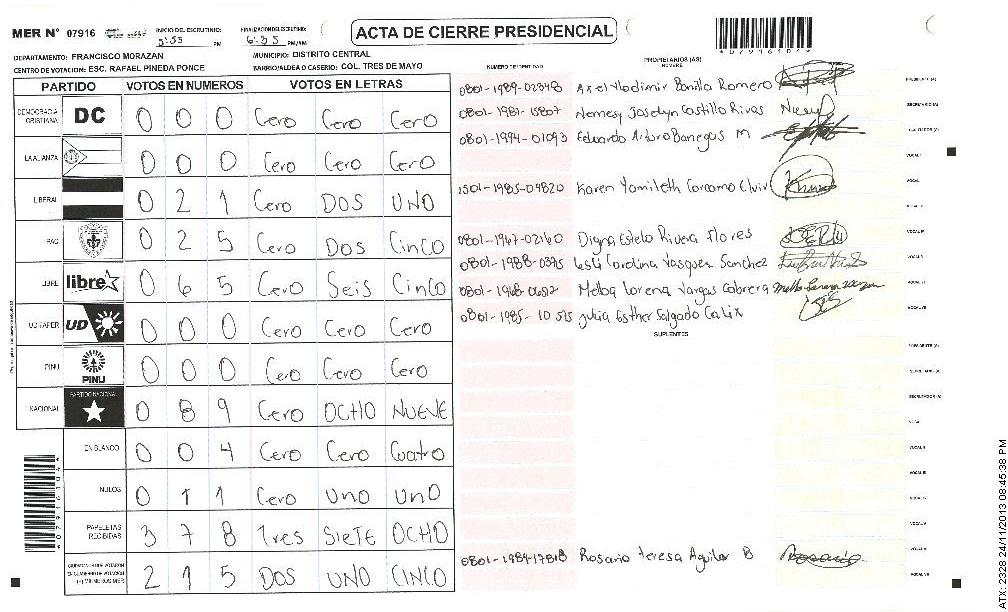 MER N° 07916
INICIO DEL ESCRUTINIO: 5:55 PM
FINALIZACION DEL ESCRUTINIO: 6:35 PM/AM
ACTA DE CIERRE PRESIDENCIAL
*07916101*
DEPARTAMENTO: FRANCISCO MORAZAN
MUNICIPIO: DISTRITO CENTRAL
CENTRO DE VOTACION: ESC. RAFAEL PINEDA PONCE
BARRIO/ALDEA O CASERIO: COL. TRES DE MAYO
PARTIDO VOTOS EN NUMEROS VOTOS EN LETRAS
DEMOCRACIA CRISTIANA DC 0 0 0 Cero Cero Cero
LA ALIANZA 0 0 0 Cero Cero Cero
LIBERAL 0 2 1 Cero DOS UNO
PAC 0 2 5 Cero DOS CINCO
LIBRE libre 0 6 5 Cero Seis CINCO
UD-FAPER UD 0 0 0 Cero Cero Cero
PINU PINU 0 0 0 Cero Cero Cero
NACIONAL PARTIDO NACIONAL 0 8 9 Cero OCHO NUEVE
EN BLANCO 0 0 4 Cero Cero Cuatro
NULOS 0 1 1 Cero UNO UNO
PAPELETAS RECIBIDAS 3 7 8 Tres SIETE OCHO
CIUDADANOS QUE VOTARON EN CUADERNO DE VOTACION (+) MIEMBROS MER 2 1 5 DOS UNO CINCO
PROPIETARIOS (AS)
NUMERO DE IDENTIDAD NOMBRE
0801-1989-02848 Axel Vladimir Bonilla Romero PRESIDENTE (A)
0801-1981-15807 Nemesy Joselyn Castillo Rivas SECRETARIO (A)
0801-1994-01093 Eduardo Arturo Banegas M ESCRUTADOR (A)
VOCAL I
1501-1985-04820 Karen Yamileth Carcamo Elvir VOCAL II
VOCAL III
0801-1967-02160 Digna Estela Rivera Flores VOCAL IV
0801-1988-0395 Lesli Carolina Vasquez Sanchez VOCAL V
0801-1968-0682 Melba Lorena Vargas Cabrera VOCAL VI
0801-1985-10515 Julia Esther Salgado Calix VOCAL VII
SUPLENTES
PRESIDENTE (A)
SECRETARIO (A)
ESCRUTADOR (A)
VOCAL I
VOCAL II
VOCAL III
VOCAL IV
VOCAL V
0801-1984-17818 Rosario Teresa Aguilar B Rosario VOCAL VI
VOCAL VII
ATX: 2328 24/11/2013 08:45:38 PM